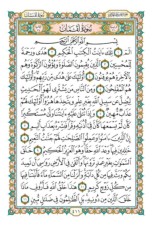 سُورَةُ لُقْمَان
بسم الله الرحمن الرحيم
الم تلك ءايات الكتاب الحكيم هدى ورحمة
للمحسنين الذين يقيمون الصلوة ويؤتون الزكوة وهم
بالأخرة هم يوقنون أولئك على هدى من ربهم وأولئك
هم المفلحون ومن الناس من يشترى لهو الحديث
ليضل عن سبيل الله بغير علم ويتخذها هزوا أولئك لهم
عذاب مهين وإذا تتلى عليه ءاياتنا ولى مستكبرا كأن
لم يسمعها كأن فى أذنيه وقرا فبشره بعذاب أليم إن
الذين ءامنوا وعملوا الصالحات لهم جنات النعيم
خالدين فيها وعد الله حقا وهو العزيز الحكيم خلق
السماوات بغير عمد ترونها وألقى فى الأرض رواسى أن تميد
بكم وبث فيها من كل دابة وأنزلنا من السماء ماء فأنبتنا فيها
من كل زوج كريم هذا خلق الله فأرونى ماذا خلق
الذين من دونه بل الظالمون فى ضلال مبين
٤١١